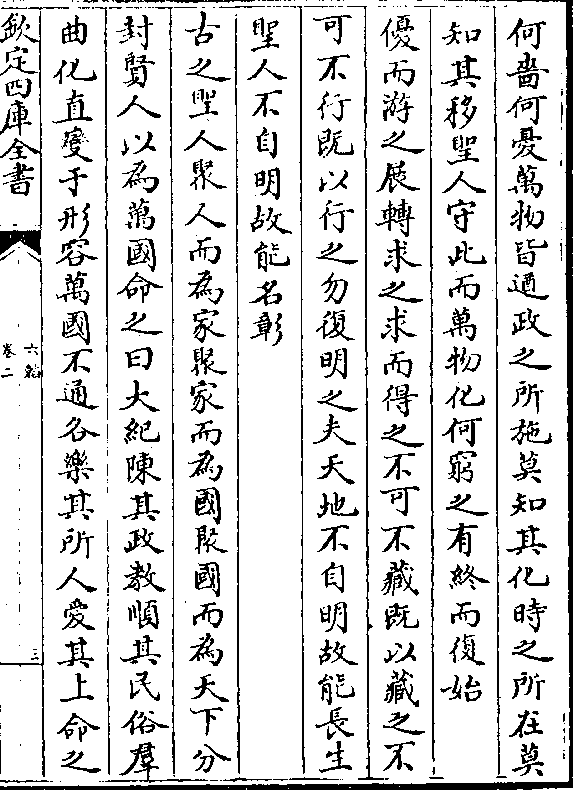 何嗇何憂萬物皆遒政之所施莫知其化時之所在莫
知其移聖人守此而萬物化何窮之有終而復始
優而游之展轉求之求而得之不可不藏既以藏之不
可不行既以行之勿復明之夫天地不自明故能長生
聖人不自明故能名彰
古之聖人聚人而為家聚家而為國聚國而為天下分
封賢人以為萬國命之曰大紀陳其政教順其民俗羣
曲化直變于形容萬國不通各樂其所人愛其上命之
欽定四庫全書
六韜
卷二
三